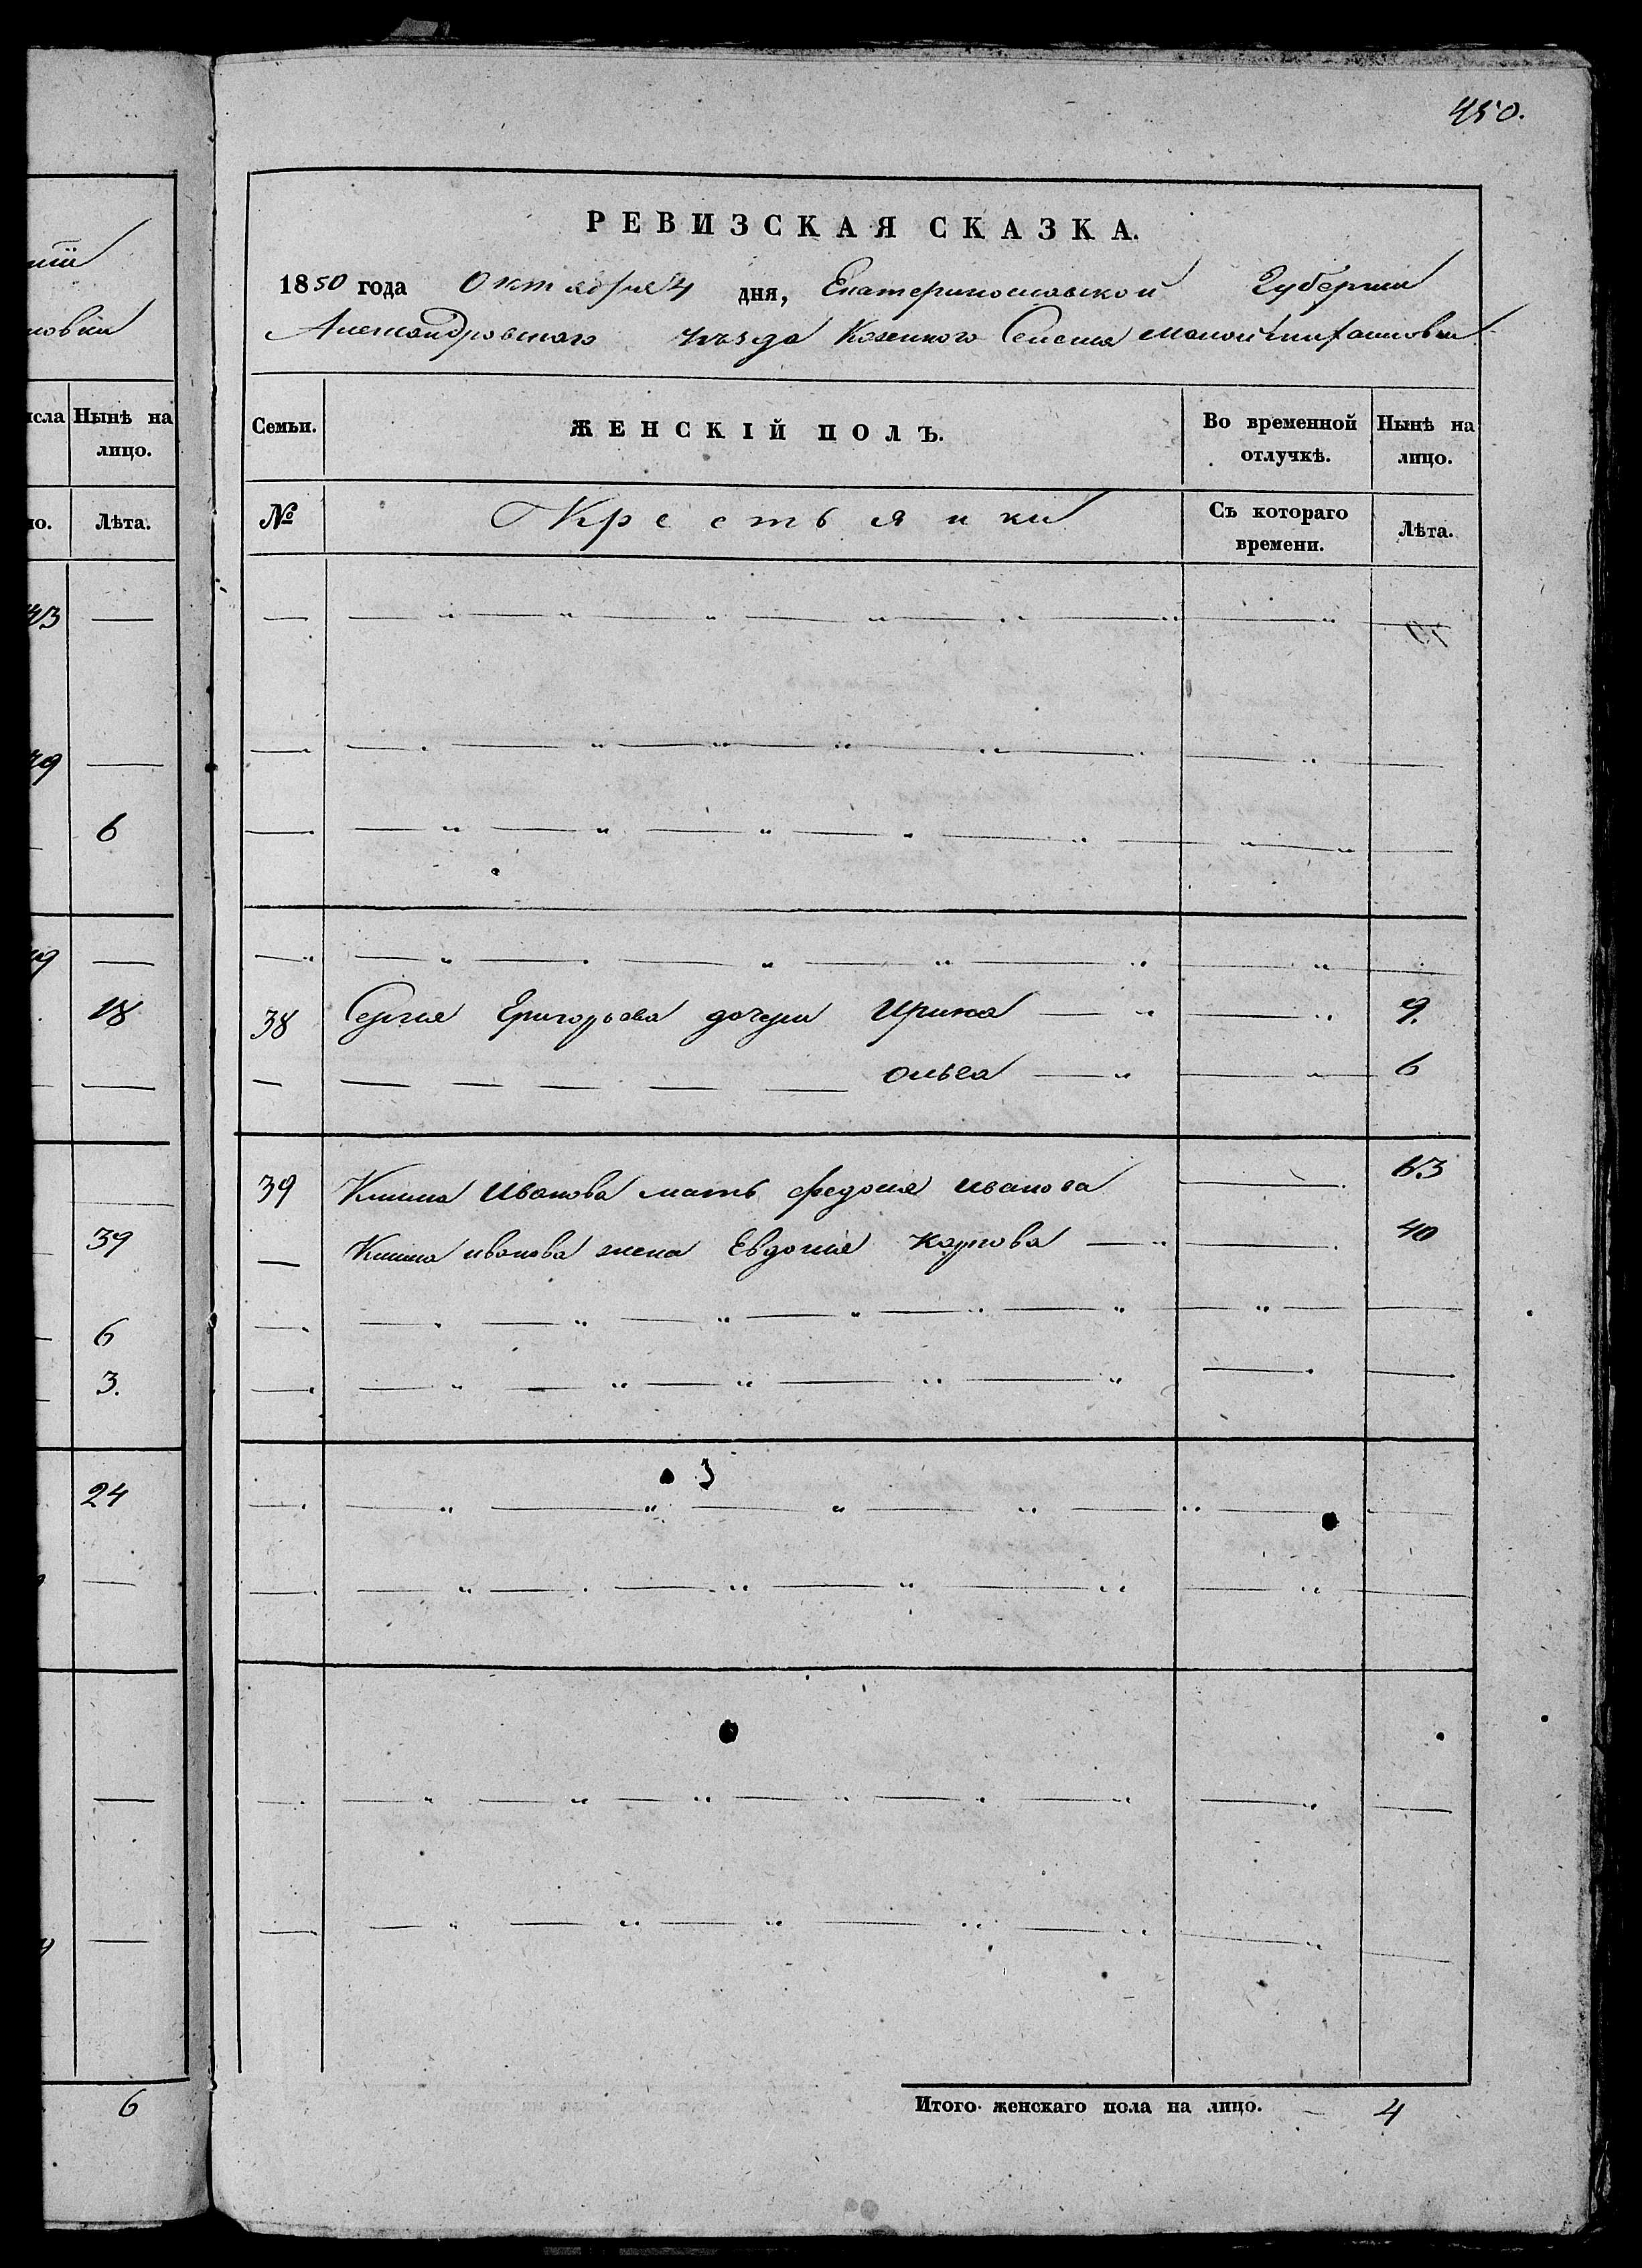 450.
РЕВИЗСКАЯ СКАЗКА.
1850 года Октября 4 дня, Екатеринославской Губернии
Александровскаго уѣзда Казенного Селенія Малой
нії
новки
исла Нынѣ на лицо.
но. Лѣта.
43 —
49 —
6
49 —
18
39
6
3.
24
6
Семьи. ЖЕНСКІЙ ПОЛЪ. Во временной отлучкѣ. Нынѣ на лицо.
№ Крестьянки Съ котораго времени. Лѣта.
38 Сергия Григорьева дочери Ирина — " — " 9.
— — — — — — Ольга — " — " 6
39 Клима Иванова мать Федосия Иванова — . 63
— Клима Иванова жена Евдокия Карпова — " — . 40
Итого женскаго пола на лицо. — 4